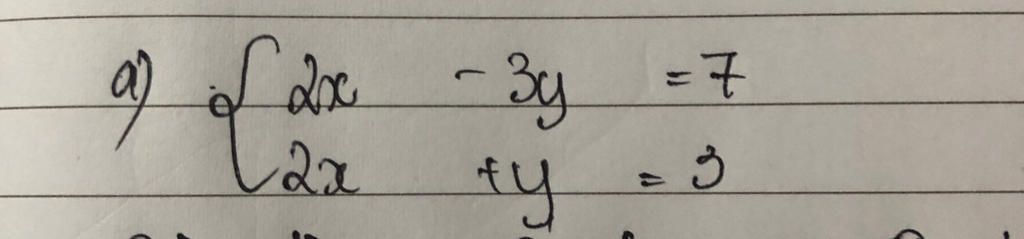 a) { 2x - 3y = 7
2x + y = 3